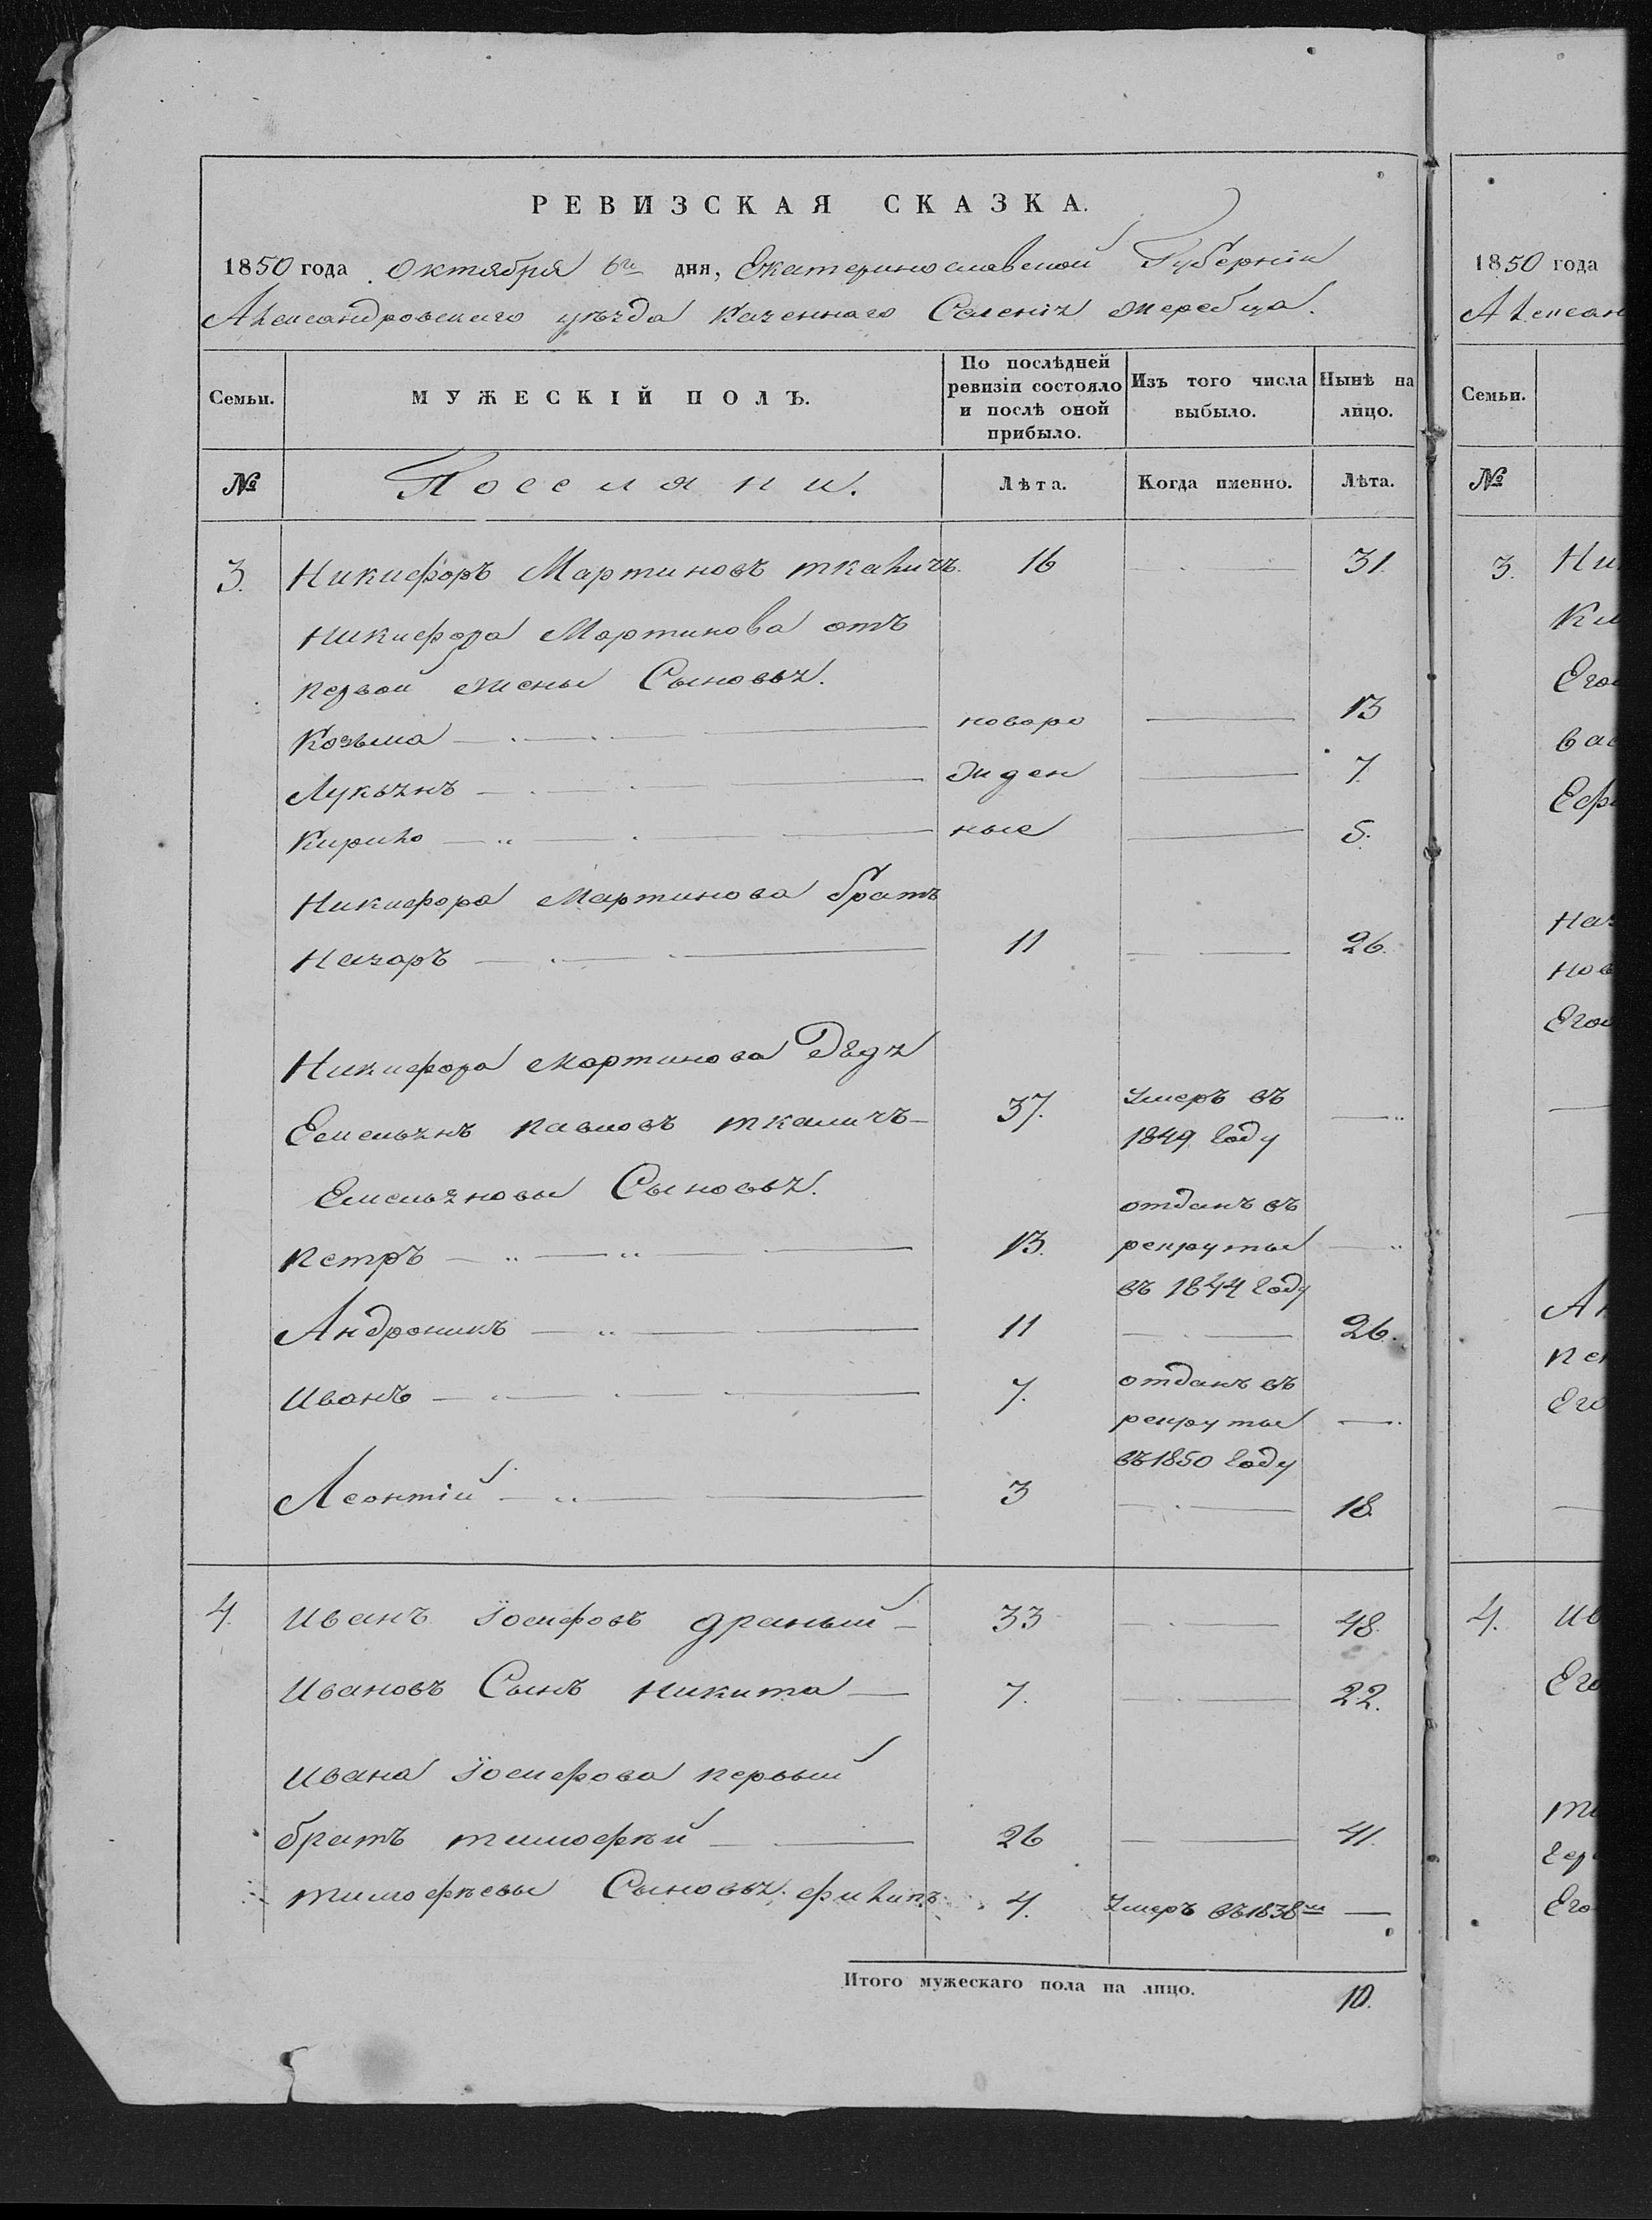 РЕВИЗСКАЯ СКАЗКА.
1850 года Октября 6го дня, Екатеринославской Губерніи
Александровскаго уѣзда Казеннаго Селенія Жеребца.
Семьи. МУЖЕСКІЙ ПОЛЪ. По послѣдней ревизіи состояло и послѣ оной прибыло. Изъ того числа выбыло. Нынѣ на лицо.
№ Поселяни. Лѣта. Когда именно. Лѣта.
3. Никифоръ Мартиновъ ткаличъ. 16 31.
Никифора Мартинова отъ
первой жены Сыновья.
Козьма новоро 13
Лукьянъ жден 7.
Кирило ные 5.
Никифора Мартинова братъ
Назаръ 11 26.
Никифора Мартинова Дядя
Емельянъ Павловъ ткаличъ 37. Умеръ въ 1849 Году
Емельяновы Сыновья.
Петръ 13. отданъ въ рекруты въ 1844 Году
Андроникъ 11 26.
Иванъ 7. отданъ въ рекруты въ 1850 Году
Леонтій 3 18.
4. Иванъ Іосифовъ драный 33 48.
Ивановъ Сынъ Никита 7. 22.
Ивана Іосифова первый
братъ тимофѣй 26 41.
тимофѣевы Сыновья. филипъ 4. Умеръ въ 1838м
Итого мужескаго пола на лицо. 10.
1850 года
Алексан
Семьи.
№
3. Ни
Ки
Его
Вас
Ефи
Наз
Нов
Его
Ан
Пе
Его
4. Ив
Его
ти
Его